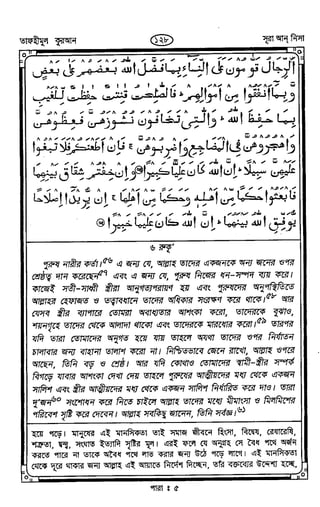 তাফহীমুল কুরআন
১২৮
সূরা আন্ নিসা
اَلرِّجَالُ قَوّٰمُوْنَ عَلَى النِّسَآءِ بِمَا فَضَّلَ اللّٰهُ بَعْضَهُمْ عَلٰى بَعْضٍ
وَّبِمَآ اَنْفَقُوْا مِنْ اَمْوَالِهِمْ ؕ فَالصّٰلِحٰتُ قٰنِتٰتٌ حٰفِظٰتٌ لِّلْغَيْبِ
بِمَا حَفِظَ اللّٰهُ ؕ وَالّٰتِيْ تَخَافُوْنَ نُشُوْزَهُنَّ فَعِظُوْهُنَّ
وَاهْجُرُوْهُنَّ فِي الْمَضَاجِعِ وَاضْرِبُوْهُنَّ ۚ فَاِنْ اَطَعْنَكُمْ فَلَا تَبْغُوْا
عَلَيْهِنَّ سَبِيْلًا ؕ اِنَّ اللّٰهَ كَانَ عَلِيًّا كَبِيْرًا وَاِنْ خِفْتُمْ شِقَاقَ بَيْنِهِمَا
فَابْعَثُوْا حَكَمًا مِّنْ اَهْلِهٖ وَحَكَمًا مِّنْ اَهْلِهَا ۚ اِنْ يُّرِيْدَآ اِصْلَاحًا
يُّوَفِّقِ اللّٰهُ بَيْنَهُمَا ؕ اِنَّ اللّٰهَ كَانَ عَلِيْمًا خَبِيْرًا
৬ রুকূ'
পুরুষ নারীর কর্তা।৫৬ এ জন্য যে, আল্লাহ তাদের একজনকে অন্য জনের ওপর
শ্রেষ্ঠত্ব দান করেছেন৫৭ এবং এ জন্য যে, পুরুষ নিজের ধন-সম্পদ ব্যয় করে।
কাজেই সতী-সাধ্বী স্ত্রীরা আনুগত্যপরায়ণ হয় এবং পুরুষদের অনুপস্থিতিতে
আল্লাহর হেফাজত ও তত্বাবধানে তাদের অধিকার সংরক্ষণ করে থাকে।৫৮ আর
যেসব স্ত্রীর ব্যাপারে তোমরা অবাধ্যতার আশংকা করো, তাদেরকে বুঝাও,
শয়নগৃহে তাদের থেকে আলাদা থাকো এবং তাদেরকে মারধোর করো।৫৯ তারপর
যদি তারা তোমাদের অনুগত হয়ে যায় তাহলে অযথা তাদের ওপর নির্যাতন
চালাবার জন্য বাহানা তালাশ করো না। নিশ্চিতভাবে জেনে রাখো, আল্লাহ ওপরে
আছেন, তিনি বড় ও শ্রেষ্ঠ। আর যদি কোথাও তোমাদের স্বামী-স্ত্রীর সম্পর্ক
বিগড়ে যাবার আশংকা দেখা দেয় তাহলে পুরুষের আত্মীয়দের মধ্য থেকে একজন
সালিশ এবং স্ত্রীর আত্মীয়দের মধ্য থেকে একজন সালিশ নির্ধারিত করে দাও। তারা
দু'জন৬০ সংশোধন করে নিতে চাইলে আল্লাহ তাদের মধ্যে মীমাংসা ও মিলমিশের
পরিবেশ সৃষ্টি করে দেবেন। আল্লাহ সবকিছু জানেন, তিনি সর্বজ্ঞ।৬১
হয়ে পড়ে। মানুষের এই মানসিকতা তাই সমাজ জীবনে হিংসা, বিদ্বেষ, রেষারেষি,
শত্রুতা, দ্বন্দ্ব, সংঘাত ইত্যাদি সৃষ্টির মূল। এরই ফলে যে অনুগ্রহ সে বৈধ পথে অর্জন
করতে পারে না তাকে অবৈধ পথে লাভ করার জন্য উঠে পড়ে লাগে। এই মানসিকতা
থেকে দূরে থাকার জন্য আল্লাহ এই আয়াতে নির্দেশ দিচ্ছেন, তাঁর বক্তব্যের উদ্দেশ্য হচ্ছে,
পারা ঃ ৫